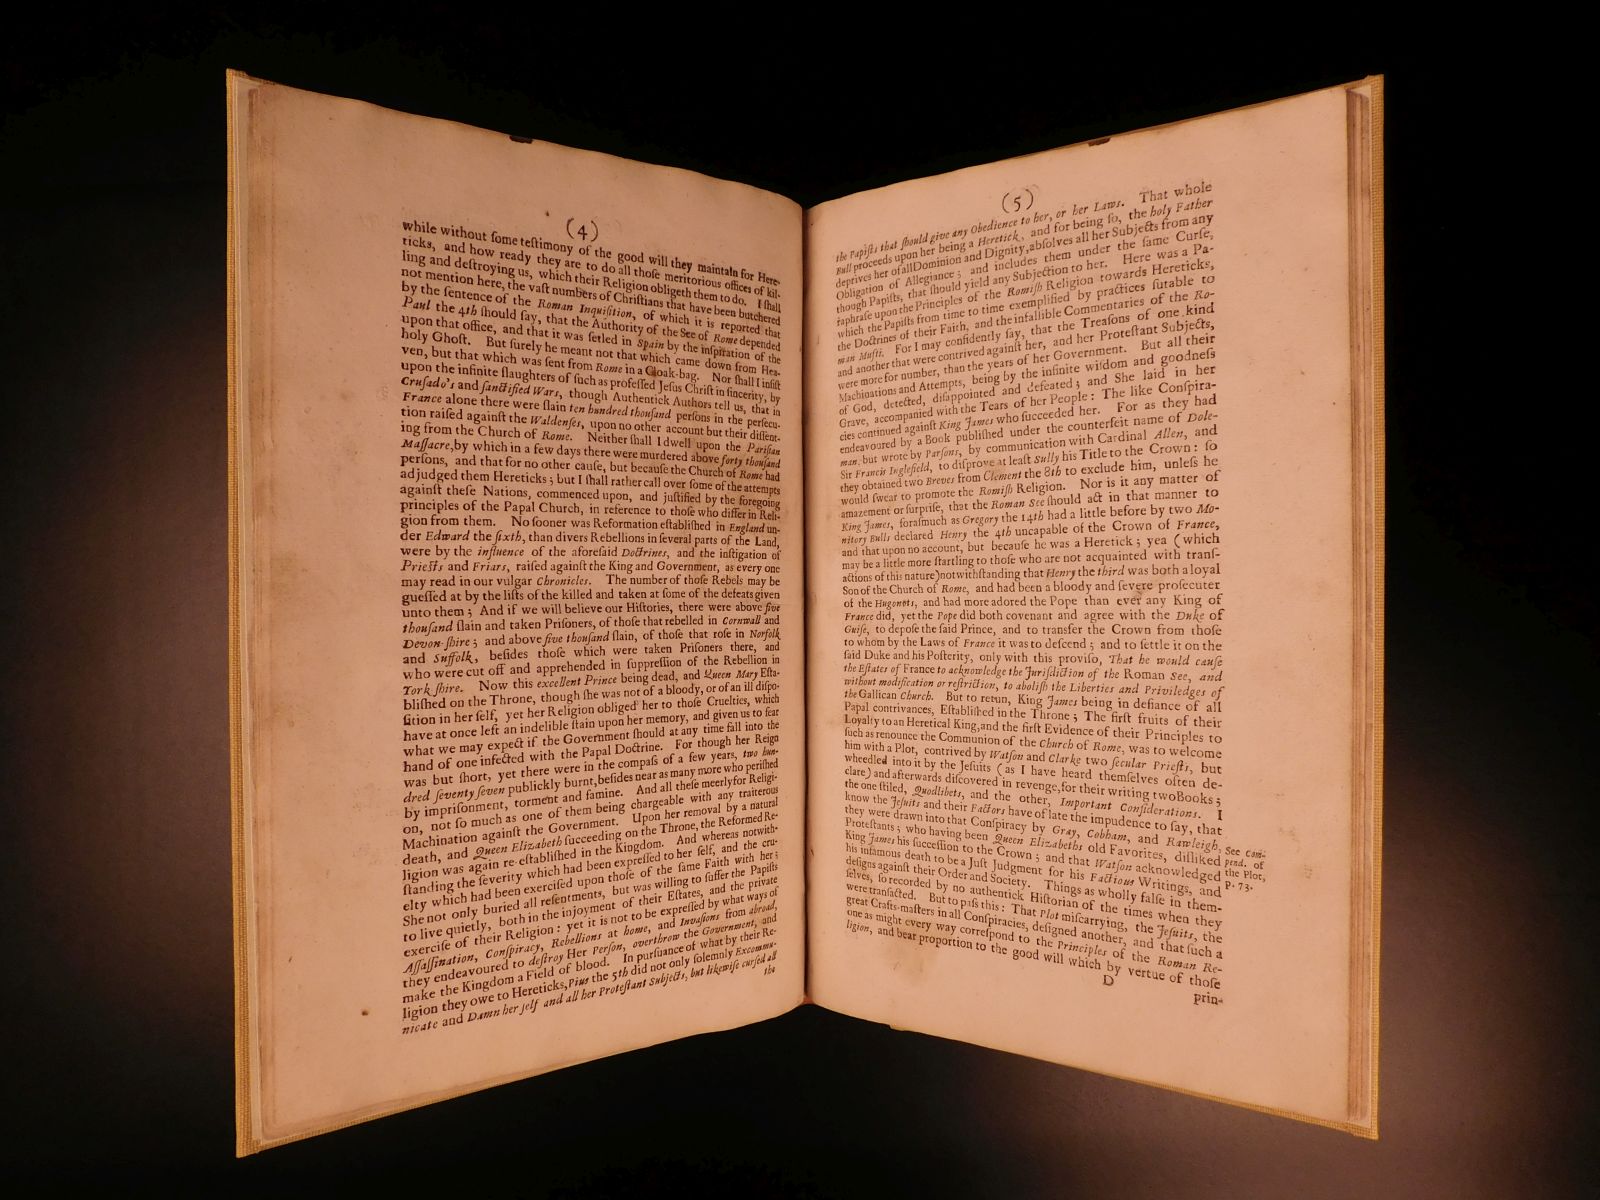 (4)
while without ſome teſtimony of the good will they maintain for Here-
ticks, and how ready they are to do all thoſe meritorious offices of kil-
ling and deſtroying us, which their Religion obligeth them to do. I ſhall
not mention here, the vaſt numbers of Chriſtians that have been butchered
by the ſentence of the Roman Inquiſition, of which it is reported that
Paul the 4th ſhould ſay, that the Authority of the See of Rome depended
upon that office, and that it was ſetled in Spain by the inſpiration of the
holy Ghoſt. But ſurely he meant not that which came down from Hea-
ven, but that which was ſent from Rome in a Cloak-bag. Nor ſhall I inſiſt
upon the infinite ſlaughters of ſuch as profeſſed Jeſus Chriſt in ſincerity, by
Cruſado's and ſanctified Wars, though Authentick Authors tell us, that in
France alone there were ſlain ten hundred thouſand perſons in the perſecu-
tion raiſed againſt the Waldenſes, upon no other account but their diſſent-
ing from the Church of Rome. Neither ſhall I dwell upon the Pariſian
Maſſacre, by which in a few days there were murdered above forty thouſand
perſons, and that for no other cauſe, but becauſe the Church of Rome had
adjudged them Hereticks; but I ſhall rather call over ſome of the attempts
againſt theſe Nations, commenced upon, and juſtified by the foregoing
principles of the Papal Church, in reference to thoſe who differ in Reli-
gion from them. No ſooner was Reformation eſtabliſhed in England un-
der Edward the ſixth, than divers Rebellions in ſeveral parts of the Land,
were by the influence of the aforeſaid Doctrines, and the inſtigation of
Prieſts and Friars, raiſed againſt the King and Government, as every one
may read in our vulgar Chronicles. The number of thoſe Rebels may be
gueſſed at by the liſts of the killed and taken at ſome of the defeats given
unto them; And if we will believe our Hiſtories, there were above five
thouſand ſlain and taken Priſoners, of thoſe that rebelled in Cornwall and
Devon-ſhire; and above five thouſand ſlain, of thoſe that roſe in Norfolk
and Suffolk, beſides thoſe which were taken Priſoners there, and
who were cut off and apprehended in ſuppreſſion of the Rebellion in
Yorkſhire. Now this excellent Prince being dead, and Queen Mary Eſta-
bliſhed on the Throne, though ſhe was not of a bloody, or of an ill diſpo-
ſition in her ſelf, yet her Religion obliged her to thoſe Cruelties, which
have at once left an indelible ſtain upon her memory, and given us to fear
what we may expect if the Government ſhould at any time fall into the
hand of one infected with the Papal Doctrine. For though her Reign
was but ſhort, yet there were in the compaſs of a few years, two hun-
dred ſeventy ſeven publickly burnt, beſides near as many more who periſhed
by impriſonment, torment and famine. And all theſe meerly for Religi-
on, not ſo much as one of them being chargeable with any traiterous
Machination againſt the Government. Upon her removal by a natural
death, and Queen Elizabeth ſucceeding on the Throne, the Reformed Re-
ligion was again re-eſtabliſhed in the Kingdom. And whereas notwith-
ſtanding the ſeverity which had been expreſſed to her ſelf, and the cru-
elty which had been exerciſed upon thoſe of the ſame Faith with her;
She not only buried all reſentments, but was willing to ſuffer the Papiſts
to live quietly, both in the injoyment of their Eſtates, and the private
exerciſe of their Religion: yet it is not to be expreſſed by what ways of
Aſſaſſination, Conſpiracy, Rebellions at home, and Invaſions from abroad,
they endeavoured to deſtroy Her Perſon, overthrow the Government, and
make the Kingdom a Field of blood. In purſuance of what by their Re-
ligion they owe to Hereticks, Pius the 5th did not only ſolemnly Excommu-
nicate and Damn her ſelf and all her Proteſtant Subjects, but likewiſe curſed all
the
(5)
the Papiſts that ſhould give any Obedience to her, or her Laws. That whole
Bull proceeds upon her being a Heretick, and for being ſo, the holy Father
deprives her of all Dominion and Dignity, abſolves all her Subjects from any
Obligation of Allegiance; and includes them under the ſame Curſe,
though Papiſts, that ſhould yield any Subjection to her. Here was a Pa-
raphraſe upon the Principles of the Romiſh Religion towards Hereticks,
which the Papiſts from time to time exemplified by practices ſutable to
the Doctrines of their Faith, and the infallible Commentaries of the Ro-
man Mufti. For I may confidently ſay, that the Treaſons of one kind
and another that were contrived againſt her, and her Proteſtant Subjects,
were more for number, than the years of her Government. But all their
Machinations and Attempts, being by the infinite wiſdom and goodneſs
of God, detected, diſappointed and defeated; and She laid in her
Grave, accompanied with the Tears of her People: The like Conſpira-
cies continued againſt King James who ſucceeded her. For as they had
endeavoured by a Book publiſhed under the counterfeit name of Dole-
man, but wrote by Parſons, by communication with Cardinal Allen, and
Sir Francis Inglefield, to diſprove at leaſt ſully his Title to the Crown: ſo
they obtained two Breves from Clement the 8th to exclude him, unleſs he
would ſwear to promote the Romiſh Religion. Nor is it any matter of
amazement or ſurpriſe, that the Roman See ſhould act in that manner to
King James, foraſmuch as Gregory the 14th had a little before by two Mo-
nitory Bulls declared Henry the 4th uncapable of the Crown of France,
and that upon no account, but becauſe he was a Heretick; yea (which
may be a little more ſtartling to thoſe who are not acquainted with tranſ-
actions of this nature) notwithſtanding that Henry the third was both a loyal
Son of the Church of Rome, and had been a bloody and ſevere proſecuter
of the Hugonots, and had more adored the Pope than ever any King of
France did, yet the Pope did both covenant and agree with the Duke of
Guiſe, to depoſe the ſaid Prince, and to transfer the Crown from thoſe
to whom by the Laws of France it was to deſcend; and to ſettle it on the
ſaid Duke and his Poſterity, only with this proviſo, That he would cauſe
the Eſtates of France to acknowledge the Juriſdiction of the Roman See, and
without modification or reſtriction, to aboliſh the Liberties and Priviledges of
the Gallican Church. But to retun, King James being in defiance of all
Papal contrivances, Eſtabliſhed in the Throne; The firſt fruits of their
Loyalty to an Heretical King, and the firſt Evidence of their Principles to
ſuch as renounce the Communion of the Church of Rome, was to welcome
him with a Plot, contrived by Watſon and Clarke two ſecular Prieſts, but
wheedled into it by the Jeſuits (as I have heard themſelves often de-
clare) and afterwards diſcovered in revenge, for their writing two Books;
the one ſtiled, Quodlibets, and the other, Important Conſiderations. I
know the Jeſuits and their Factors have of late the impudence to ſay, that
they were drawn into that Conſpiracy by Gray, Cobham, and Rawleigh,
Proteſtants; who having been Queen Elizabeths old Favorites, diſliked
King James his ſucceſſion to the Crown; and that Watſon acknowledged
his infamous death to be a Juſt Judgment for his Factious Writings, and
deſigns againſt their Order and Society. Things as wholly falſe in them-
ſelves, ſo recorded by no authentick Hiſtorian of the times when they
were tranſacted. But to paſs this: That Plot miſcarrying, the Jeſuits, the
great Crafts-maſters in all Conſpiracies, deſigned another, and that ſuch a
one as might every way correſpond to the Principles of the Roman Re-
ligion, and bear proportion to the good will which by vertue of thoſe
D
prin-
See Com-
pend. of
the Plot,
p. 73.